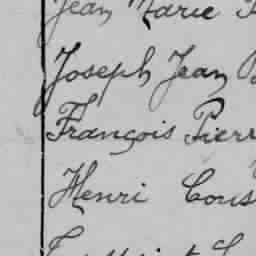 Jean Marie
Joseph Jean
François Pierr
Henri Cons